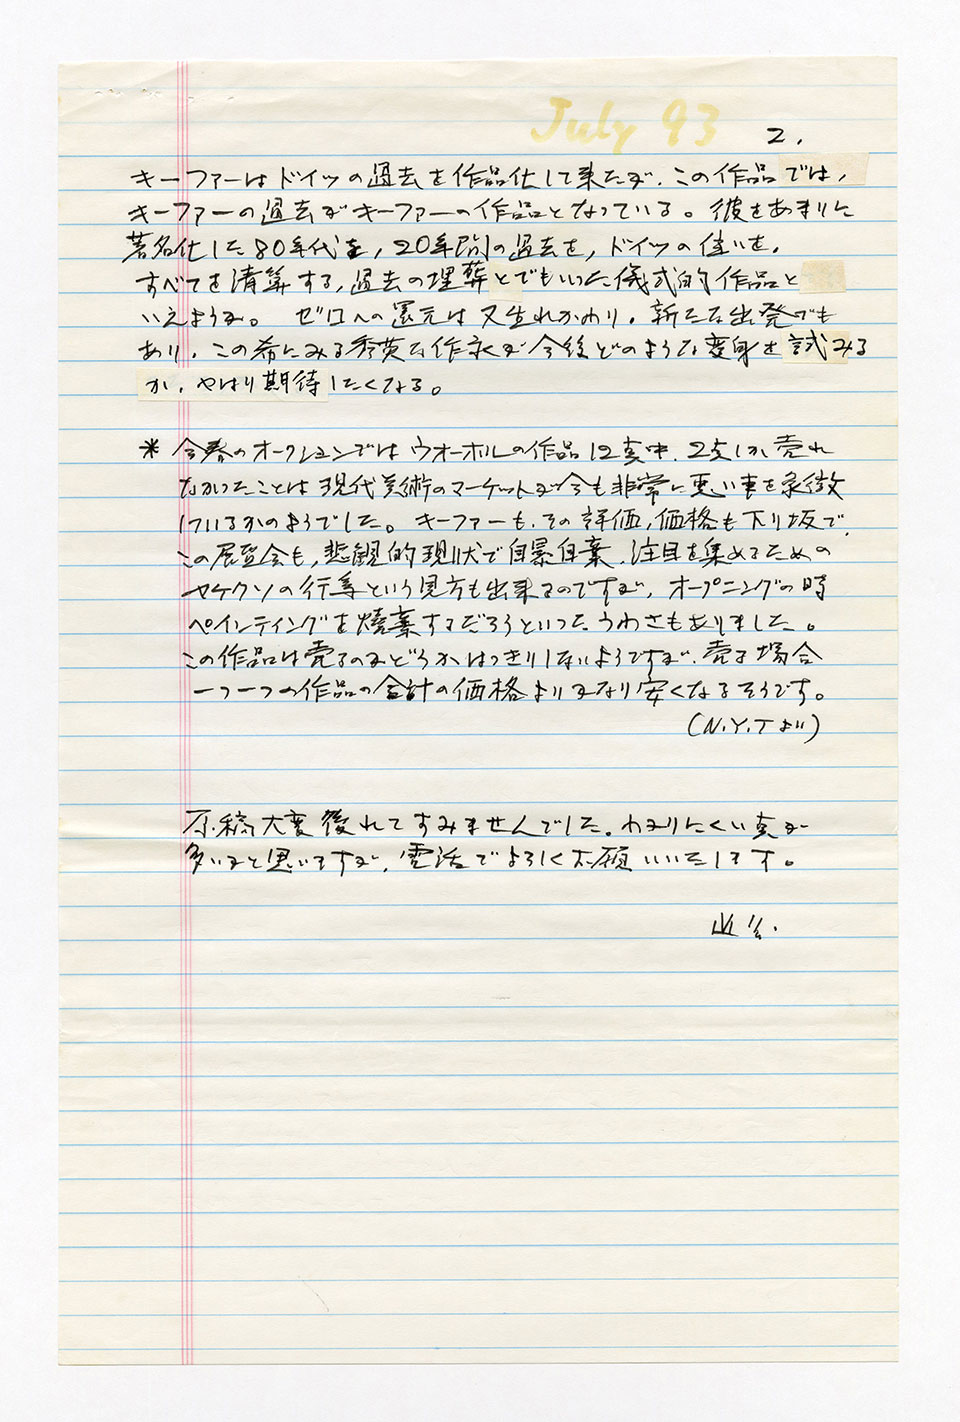 July 93 2.
キーファーはドイツの過去を作品化して来たが、この作品では、
キーファーの過去がキーファーの作品となっている。彼をあまりに
著名化した80年代を、20年間の過去を、ドイツの住いを、
すべてを清算する、過去の埋葬とでもいった儀式的作品と
いえようか。 ゼロへの還元は又生れかわり、新たな出発でも
あり、この希にみる秀英な作家が今後どのような変身を試みる
か、やはり期待したくなる。
* 今春のオークションではウォーホルの作品12点中、2点しか売れ
なかったことは現代美術のマーケットが今も非常に悪い事を象徴
しているかのようでした。キーファーも、その評価、価格も下り坂で、
この展覧会も、悲観的現状で自暴自棄、注目を集めるための
ヤケクソの行為という見方も出来るのですが、オープニングの時
ペインティングを焼棄するだろうといったうわさもありました。
この作品は売るのかどうかはっきりしないようですが、売る場合
一つ一つの作品の合計の価格よりかなり安くなるそうです。
(N.Y.Tより)
原稿大変後れてすみませんでした。わかりにくい点が
多いかと思いますが、電話でよろしくお願いいたします。